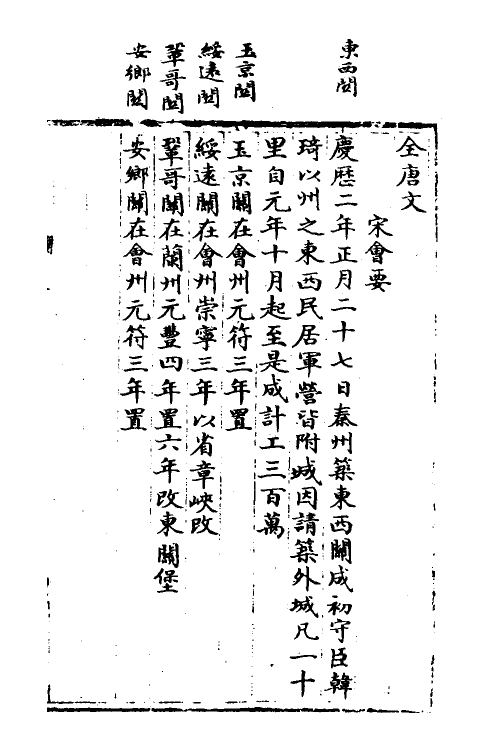 東西関
玉京関
綏遠関
鞏哥関
安鄉関
全唐文
宋會要
慶歷二年正月二十七日秦州築東西關成初守臣韓
琦以州之東西民居軍營皆附城因請築外城凡一十
里自元年十月起至是成計工三百萬
玉京關在會州元符三年置
綏遠關在會州崇寧三年以省章峽改
鞏哥關在蘭州元豐四年置六年改東關堡
安鄉關在會州元符三年置